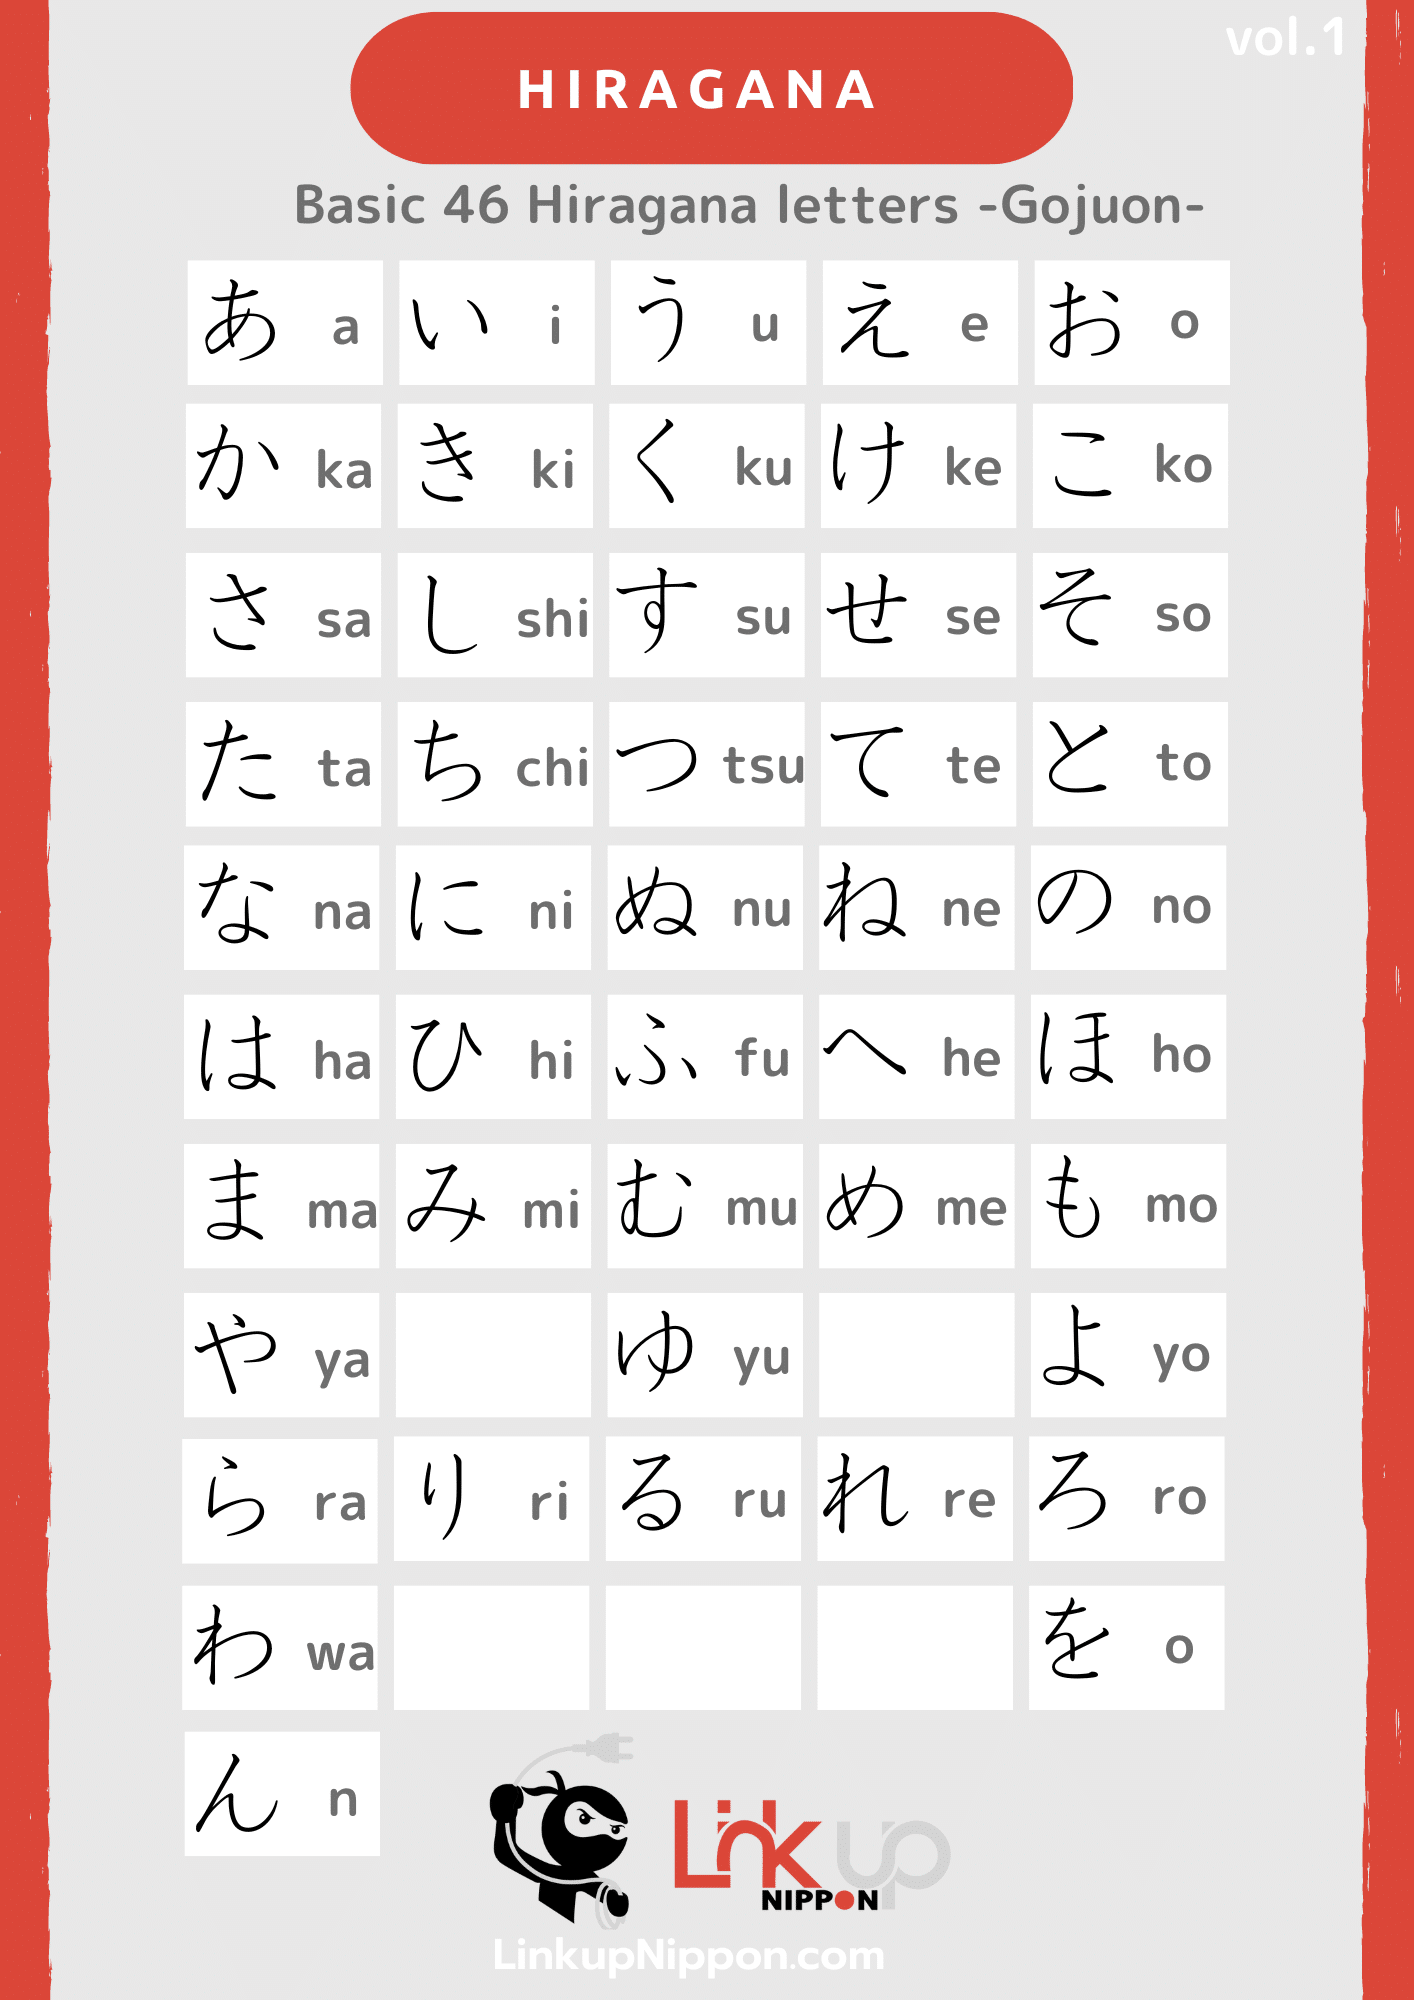 vol.1
HIRAGANA
Basic 46 Hiragana letters -Gojuon-
あ a い i う u え e お o
か ka き ki く ku け ke こ ko
さ sa し shi す su せ se そ so
た ta ち chi つ tsu て te と to
な na に ni ぬ nu ね ne の no
は ha ひ hi ふ fu へ he ほ ho
ま ma み mi む mu め me も mo
や ya ゆ yu よ yo
ら ra り ri る ru れ re ろ ro
わ wa を o
ん n
Link up
NIPPON
LinkupNippon.com